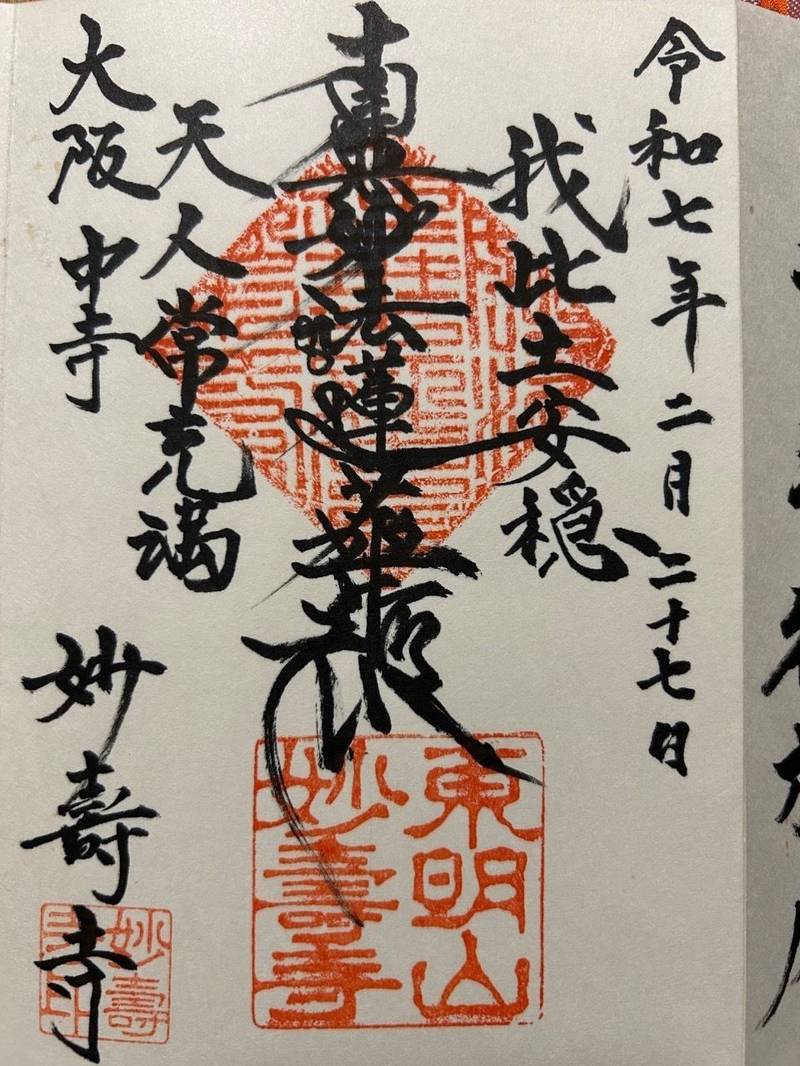 令和七年二月二十七日
我比土安穏
南無妙法蓮華経
天人常充満
大阪中寺
妙壽寺
東明山
妙壽寺
妙壽